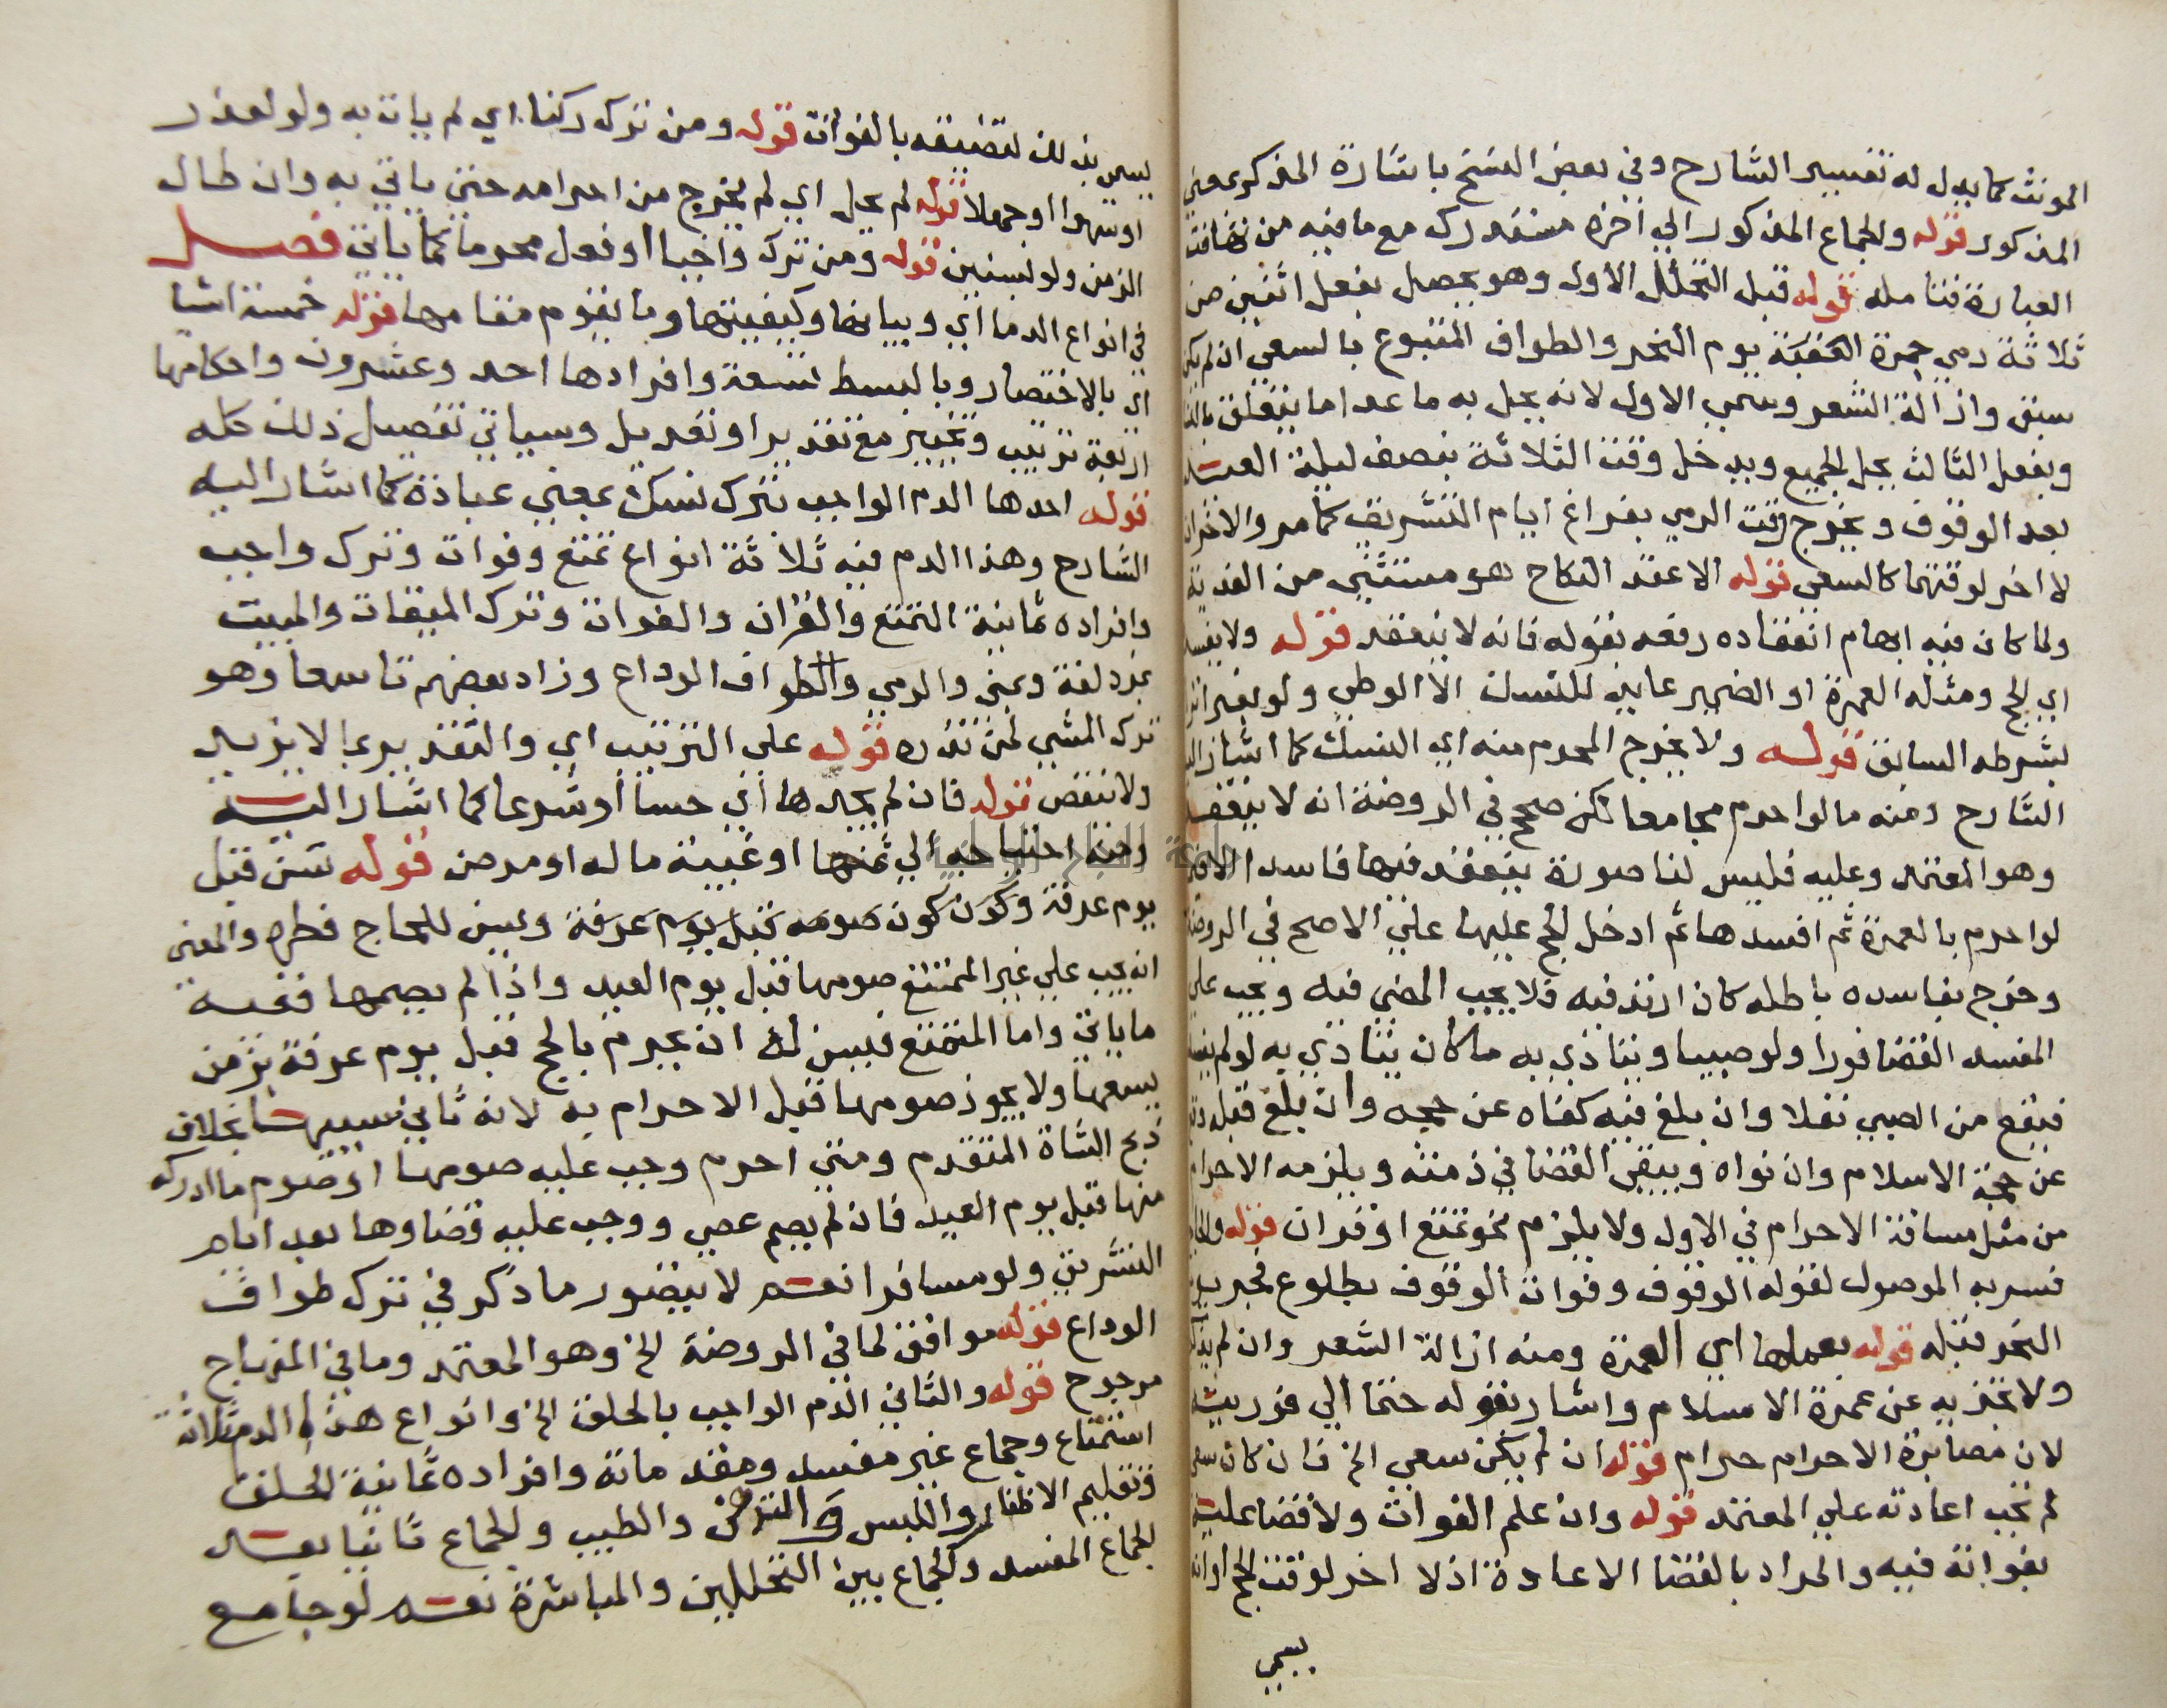 المونث كما يدل له تفسير الشارح وفي بعض النسخ باشارة المذكر بمعنى
المذكور قوله والجماع المذكور الي اخره مستدرك مع ما فيه من تهافت
العبارة فتامله قوله قبل التحلل الاول وهو يحصل بفعل اثنين من
ثلاثة رمي جمرة العقبة يوم النحر والطواف المتبوع بالسعي ان لم يكن
سبق وازالة الشعر وسمي الاول لانه يحل به ما عدا ما يتعلق بالنسا
وبفعل الثالث يحل الجميع ويدخل وقت الثلاثة بنصف ليلة العيد
بعد الوقوف ويخرج وقت الرمي بفراغ ايام التشريق كما مر والاخران
لا اخر لوقتهما كالسعي قوله الا عقد النكاح هو مستثني من الفدية
ولما كان فيه ابهام انعقاده رفعه بقوله فانه لا ينعقد قوله ولا يفسد
اي الحج ومثله العمرة او الضمير عايد للنسك الا الوطي ولو بغير انزال
بشرطه السابق قوله ولا يخرج المحرم منه اي النسك كما اشار اليه
الشارح ومنه ما لو احرم مجامعا لكن صحح في الروضة انه لا ينعقد
وهو المعتمد وعليه فليس لنا صورة ينعقد فيها فاسدا الا فيما
لو احرم بالعمرة ثم افسدها ثم ادخل الحج عليها علي الاصح في الروضة
وخرج بفاسده باطله كان ارتد فيه فلا يجب المضي فيه ويجب علي
المفسد القضا فورا ولو صبيا ويتاذي به ما كان يتاذي به لو لم يفسد
فيقع من الصبي نفلا وان بلغ فيه كفاه عن حجه وان بلغ قبله
عن حجة الاسلام وان نواه ويبقي القضا في ذمته ويلزمه الاحرام
من مثل مسافة الاحرام في الاول ولا يلزم نحو تمتع او قران قوله والحاج
فسر به الموصول لقوله الوقوف وفوات الوقوف بطلوع فجر يوم
النحر قبله قوله بعملها اي العمرة ومنه ازالة الشعر وان لم يذكره
ولا تجزيه عن عمرة الاسلام واشار بقوله حتما الي فوريته
لان مصابرة الاحرام حرام قوله ان لم يكن سعي الخ فان كان سعي
لم تجب اعادته علي المعتمد قوله وان علم الفوات ولا قضا عليه
بفواته فيه والمراد بالقضا الاعادة اذ لا اخر لوقت الحج او انه
يسمي
يسمي بذلك لتضييقه بالفوات قوله ومن ترك ركنا اي لم يات به ولو لعذر
او سهوا او جهلا قوله لم يحل اي لم يخرج من احرامه حتى ياتي به وان طال
الزمن ولو لسنين قوله ومن ترك واجبا او فعل محرما كما ياتي فصل
في انواع الدما اي وبيانها وكيفيتها وما يقوم مقامها قوله خمسة اشيا
اي بالاختصار وبالبسط تسعة وافرادها احد وعشرون واحكامها
اربعة ترتيب وتخيير مع تقدير او تعديل وسياتي تفصيل ذلك كله
قوله احدها الدم الواجب بترك نسك بمعني عبادة كما اشار اليه
الشارح وهذا الدم فيه ثلاثة انواع تمتع وفوات وترك واجب
وافراده ثمانية التمتع والقران والفوات وترك الميقات والمبيت
بمزدلفة وبمنى والرمي والطواف الوداع وزاد بعضهم تاسعا وهو
ترك المشي لمن نذره قوله علي الترتيب اي والتقدير بما لا يزيد
ولا ينقص قوله فان لم يجدها اي حسا او شرعا كما اشار اليه
ومنه احتياجه الي ثمنها او غيبة ماله او مرض قوله تسن قبل
يوم عرفة وكون كون صومه قبل يوم عرفة ويسن للحاج فطره والمعنى
انه يجب علي غير المتمتع صومها قبل يوم العيد واذا لم يصمها ففيه
ما ياتي واما المتمتع فيسن له ان يحرم بالحج قبل يوم عرفة بزمن
يسعها ولا يجوز صومها قبل الاحرام به لانه ثاني سببيها بخلاف
ذبح الشاة المتقدم ومتى احرم وجب عليه صومها او صوم ما ادركه
منها قبل يوم العيد فان لم يصم عصي ووجب عليه قضاوها بعد ايام
التشريق ولو مسافرا نعم لا يتصور ما ذكر في ترك طواف
الوداع قوله موافق لما في الروضة الخ وهو المعتمد وما في المنهاج
مرجوح قوله والثاني الدم الواجب بالحلق الخ وانواع هذا الدم ثلاثة
استمتاع وجماع غير مفسد ومقدماته وافراده ثمانية الحلق
وتقليم الاظفار واللبس والدهن والطيب والجماع ثانيا بعد
الجماع المفسد والجماع بين التحللين والمباشرة نعم لو جامع